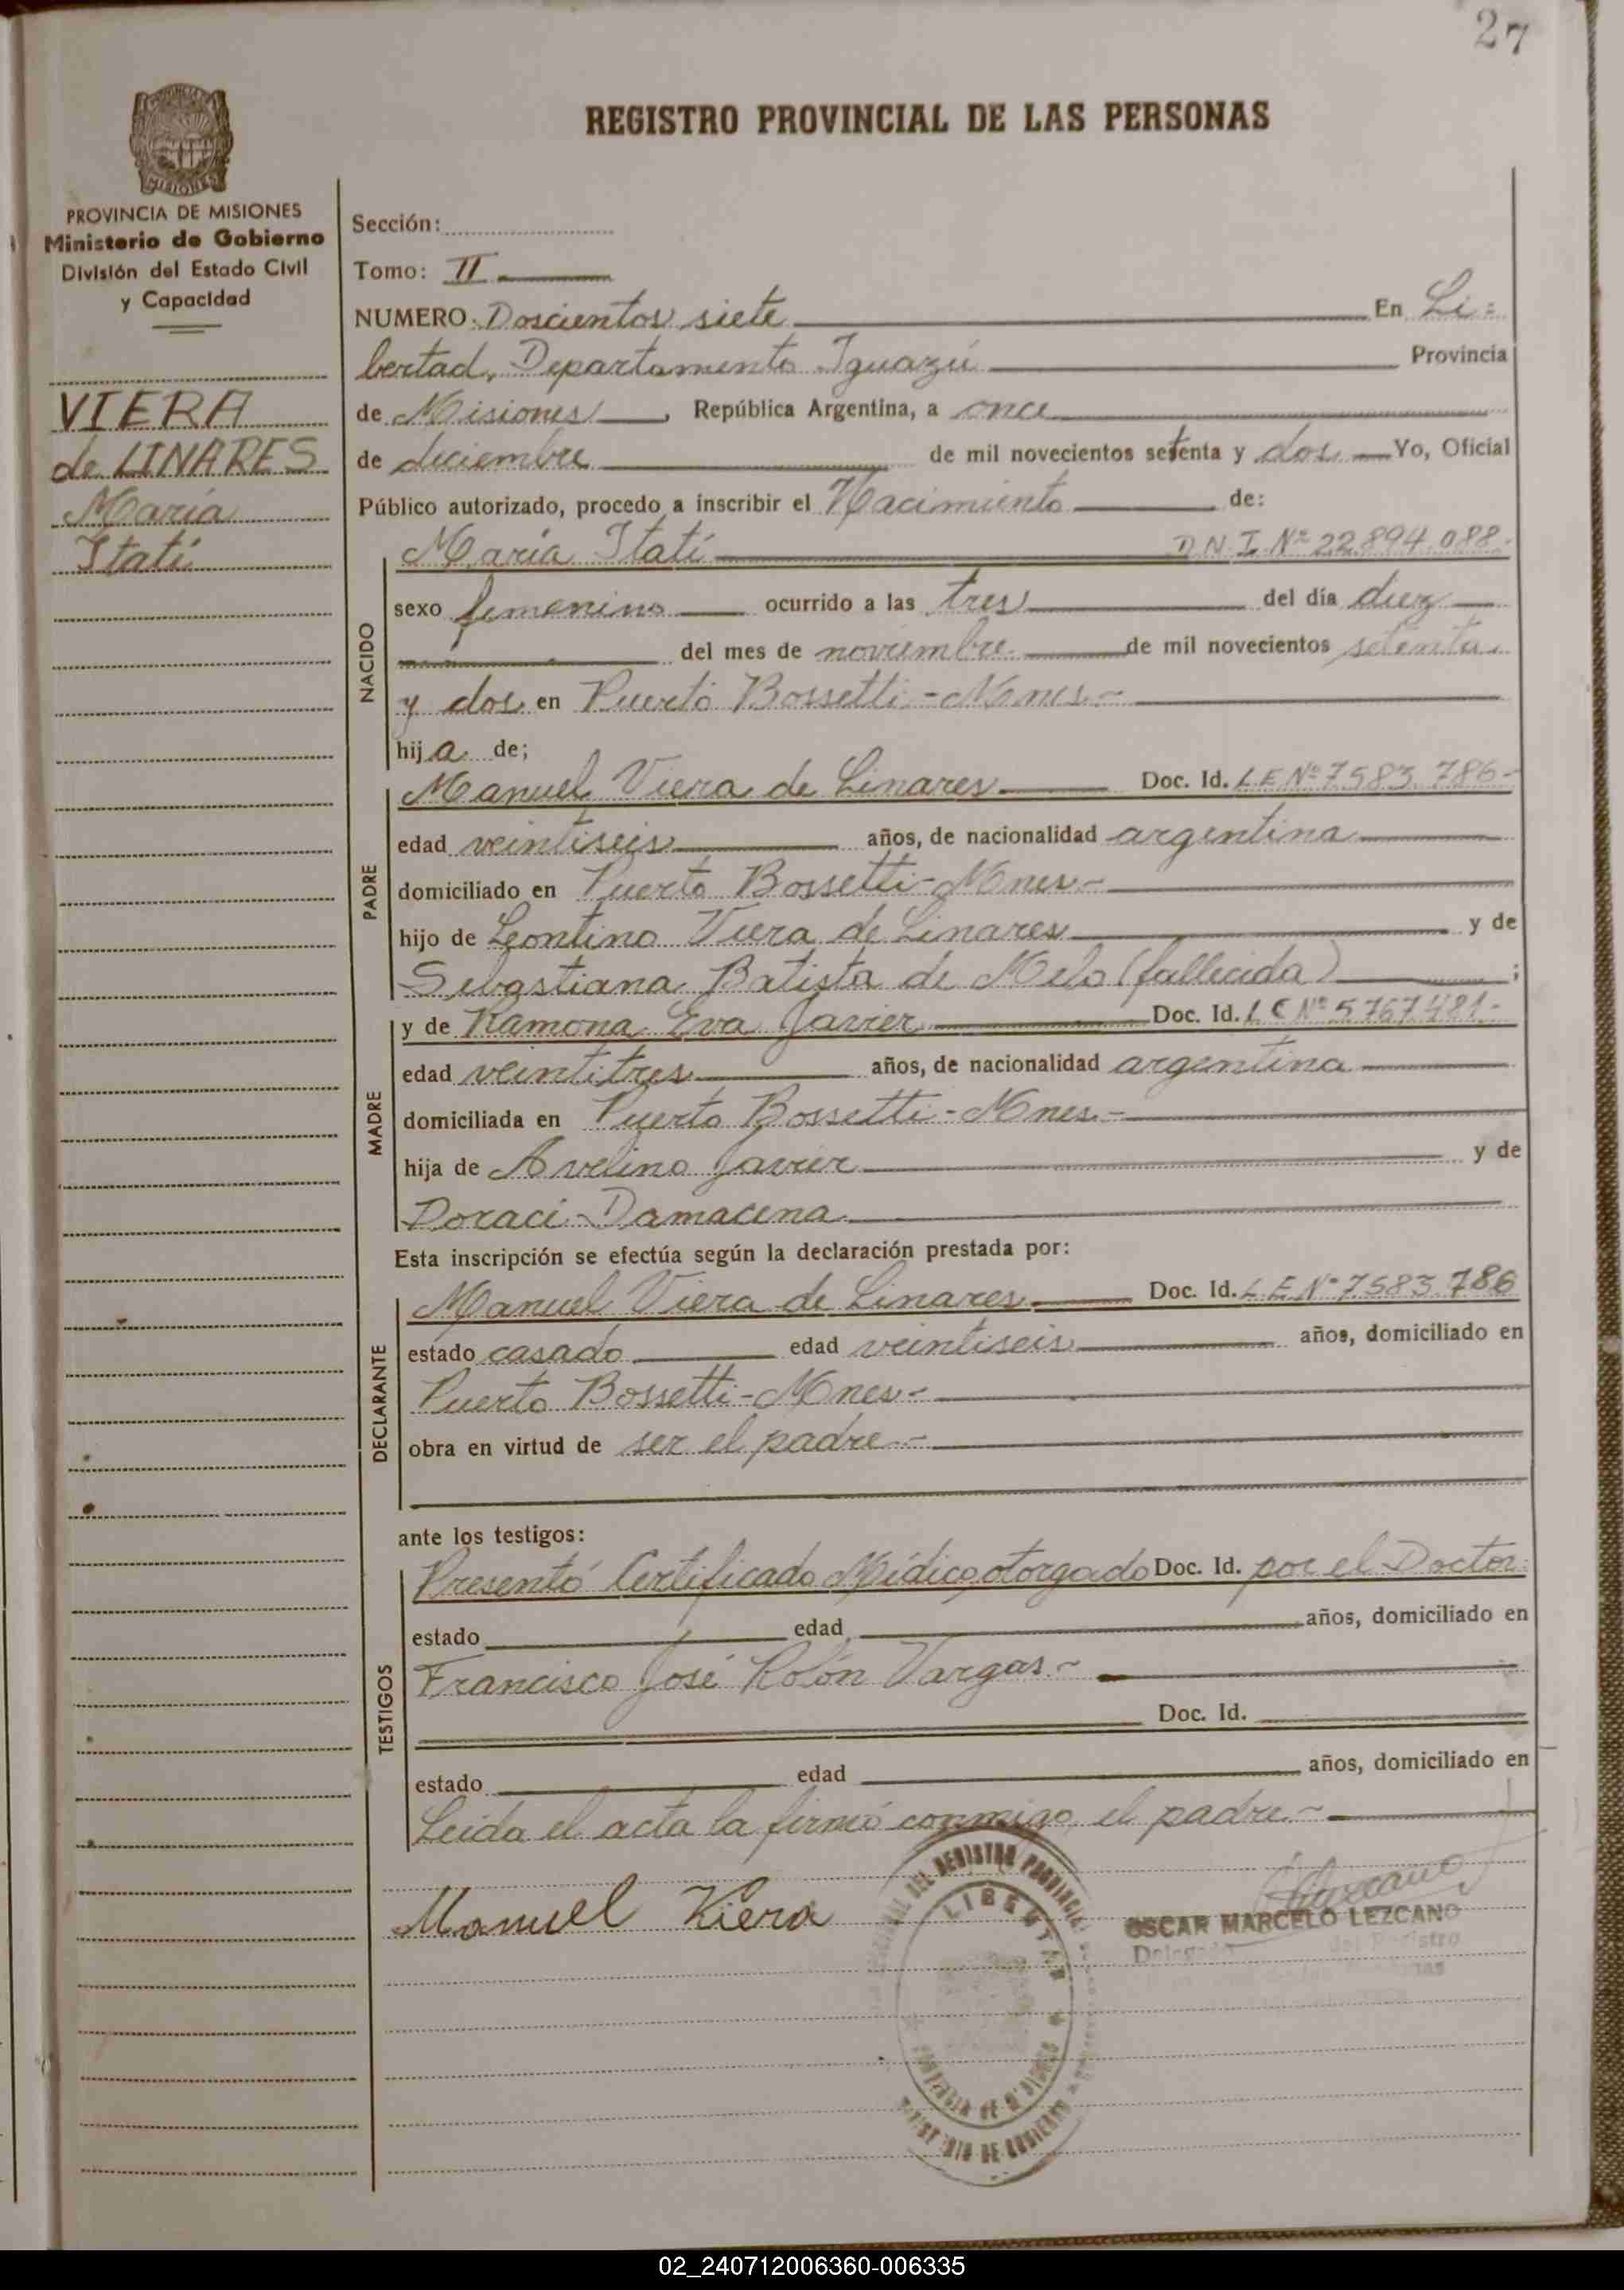 27
REGISTRO PROVINCIAL DE LAS PERSONAS
MISIONES
PROVINCIA DE MISIONES
Ministerio de Gobierno
División del Estado Civil
y Capacidad
VIERA
de LINARES
María
Itatí
Sección:
Tomo: II
NUMERO: Doscientos siete En Li=
bertad, Departamento Iguazú Provincia
de Misiones, República Argentina, a once
de diciembre de mil novecientos setenta y dos Yo, Oficial
Público autorizado, procedo a inscribir el Nacimiento de:
NACIDO
María Itatí D.N.I. Nº 22.894.088-
sexo femenino ocurrido a las tres del día diez
del mes de noviembre de mil novecientos setenta
y dos en Puerto Bossetti-Mnes.-
hija de;
PADRE
Manuel Viera de Linares Doc. Id. L.E Nº 7583.786-
edad veintiseis años, de nacionalidad argentina
domiciliado en Puerto Bossetti-Mnes-
hijo de Leontino Viera de Linares y de
Sebastiana Batista de Melo (fallecida);
MADRE
y de Ramona Eva Javier Doc. Id. L C Nº 5767.481-
edad veintitres años, de nacionalidad argentina
domiciliada en Puerto Bossetti-Mnes.-
hija de Avelino Javier y de
Doraci Damacena
Esta inscripción se efectúa según la declaración prestada por:
DECLARANTE
Manuel Viera de Linares Doc. Id. L.E.Nº 7583.786
estado casado edad veintiseis años, domiciliado en
Puerto Bossetti-Mnes-
obra en virtud de ser el padre.-
ante los testigos:
TESTIGOS
Presentó Certificado Médico, otorgado Doc. Id. por el Doctor:
estado edad años, domiciliado en
Francisco José Rolón Vargas.-
Doc. Id.
estado edad años, domiciliado en
Leida el acta la firmó conmigo el padre.-
Manuel Viera
DEL REGISTRO PROVINCIAL
LIBERTAD
PROVINCIA DE MISIONES
MINISTERIO DE GOBIERNO
OSCAR MARCELO LEZCANO
Delegado del Registro
02_240712006360-006335